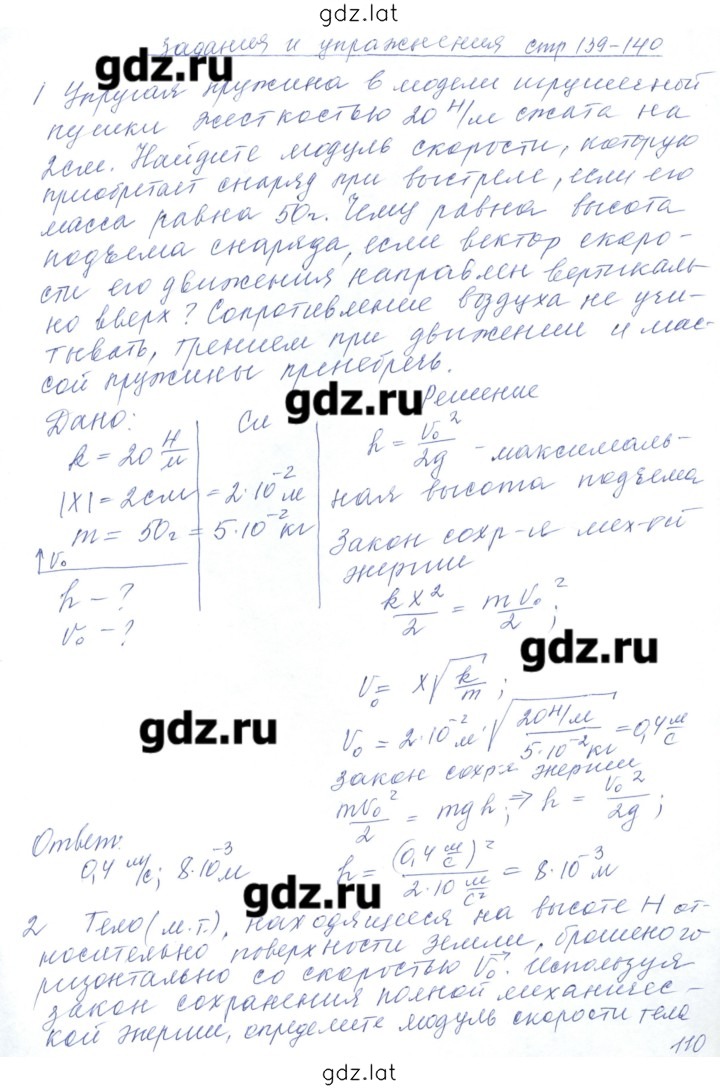 gdz.lat
Задания и упражнения стр 139-140
gdz.lat
1 Упругая пружина в модели игрушечной
пушки жесткостью 20 Н/м сжата на
2см. Найдите модуль скорости, которую
приобретает снаряд при выстреле, если его
масса равна 50г. Чему равна высота
подъема снаряда, если вектор скоро-
сти его движения направлен вертикаль-
но вверх? Сопротивление воздуха не учи-
тывать, трением при движении и мас-
сой пружины пренебречь.
gdz.lat
Дано: Си Решение
k = 20 Н/м
|X| = 2см = 2·10⁻² м
m = 50г = 5·10⁻² кг
↑v₀
h - ?
v₀ - ?
h = v₀²/2g - максималь-
ная высота подъема
Закон сохр-я мех-ой
энергии
kx²/2 = mv₀²/2;
gdz.lat
v₀ = x√(k/m);
gdz.lat
v₀ = 2·10⁻² м·√(20Н/м / 5·10⁻² кг) = 0,4 м/с
Закон сохр-я энергии
mv₀²/2 = mgh; ⇒ h = v₀²/2g;
Ответ:
0,4 м/с; 8·10⁻³ м
h = (0,4 м/с)² / 2·10 м/с² = 8·10⁻³ м
gdz.lat
2 Тело (м.т.), находящееся на высоте H от-
носительно поверхности Земли, брошено го-
ризонтально со скоростью v₀. Используя
закон сохранения полной механичес-
кой энергии, определите модуль скорости тела
110
gdz.lat